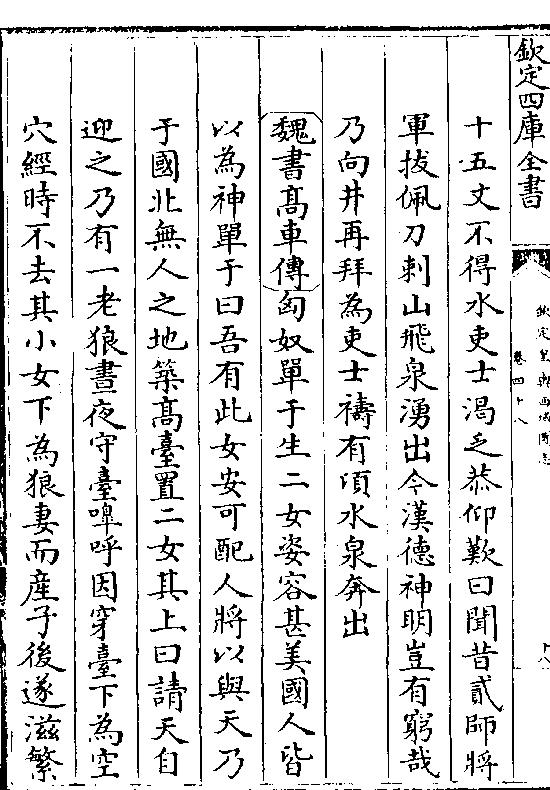 欽定四庫全書
欽定皇輿西域圖志
卷四十八
十五丈不得水吏士渴乏恭仰歎曰聞昔貳師將
軍拔佩刀刺山飛泉湧出今漢德神明豈有窮哉
乃向井再拜為吏士禱有頃水泉奔出
魏書髙車傳匈奴單于生二女姿容甚美國人皆
以為神單于曰吾有此女安可配人將以與天乃
于國北無人之地築髙臺置二女其上曰請天自
迎之乃有一老狼晝夜守臺嘷呼因穿臺下為空
穴經時不去其小女下為狼妻而産子後遂滋繁